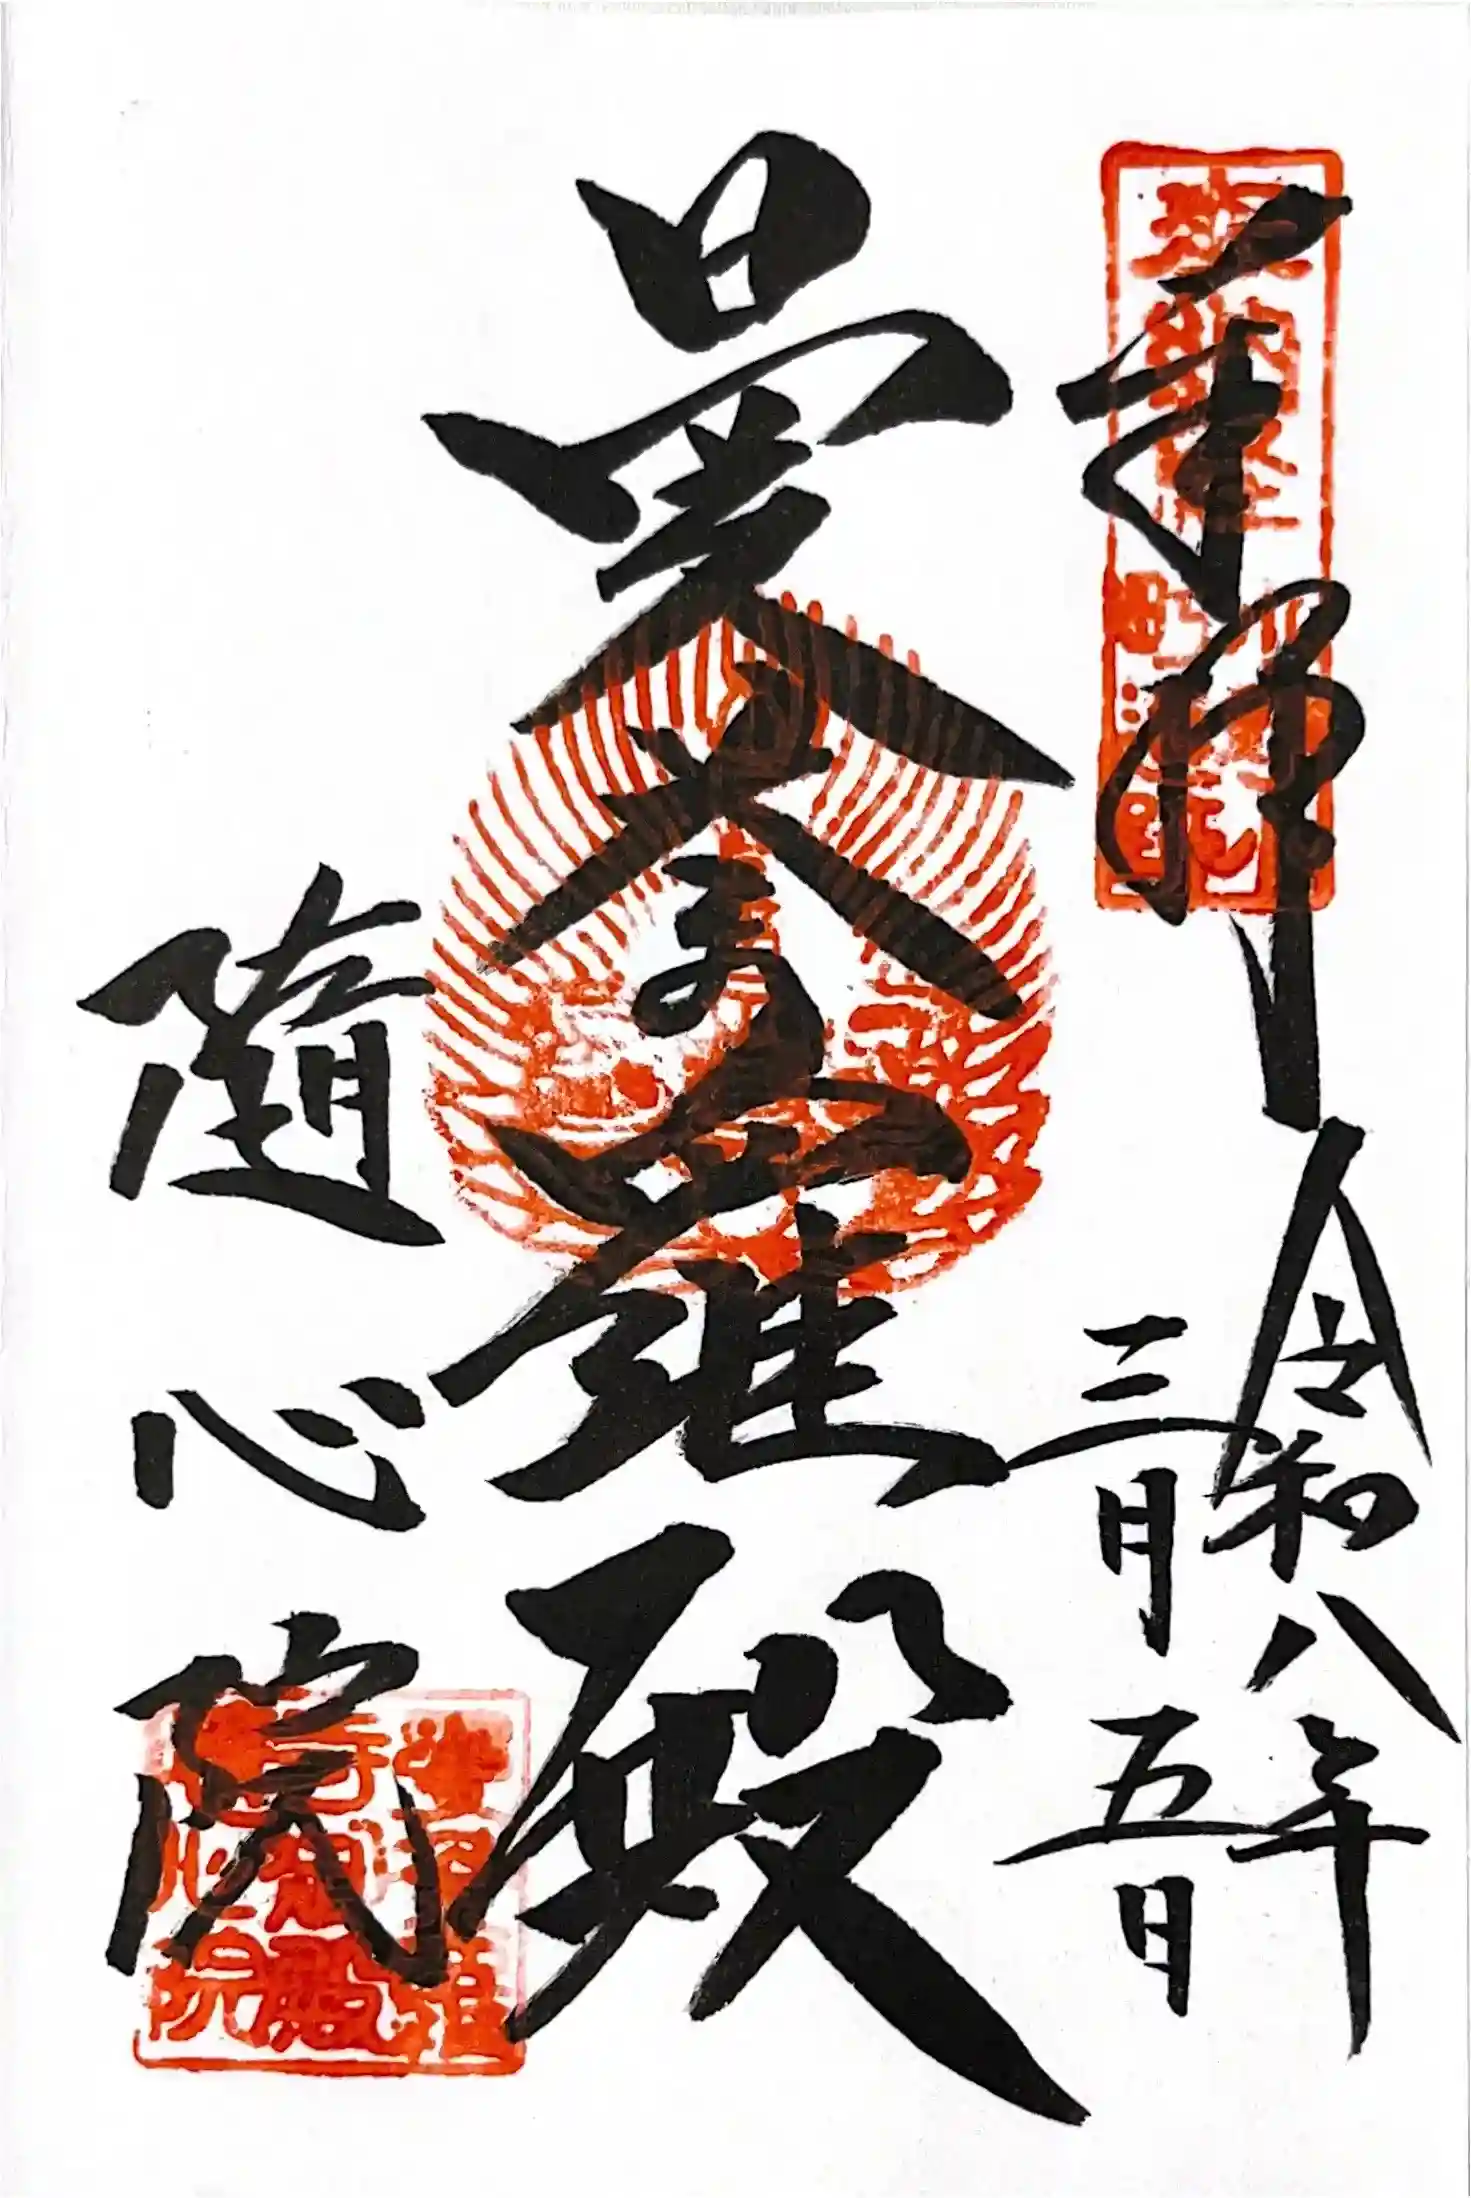 奉拝
令和八年
三月五日
曼荼羅殿
隨心院